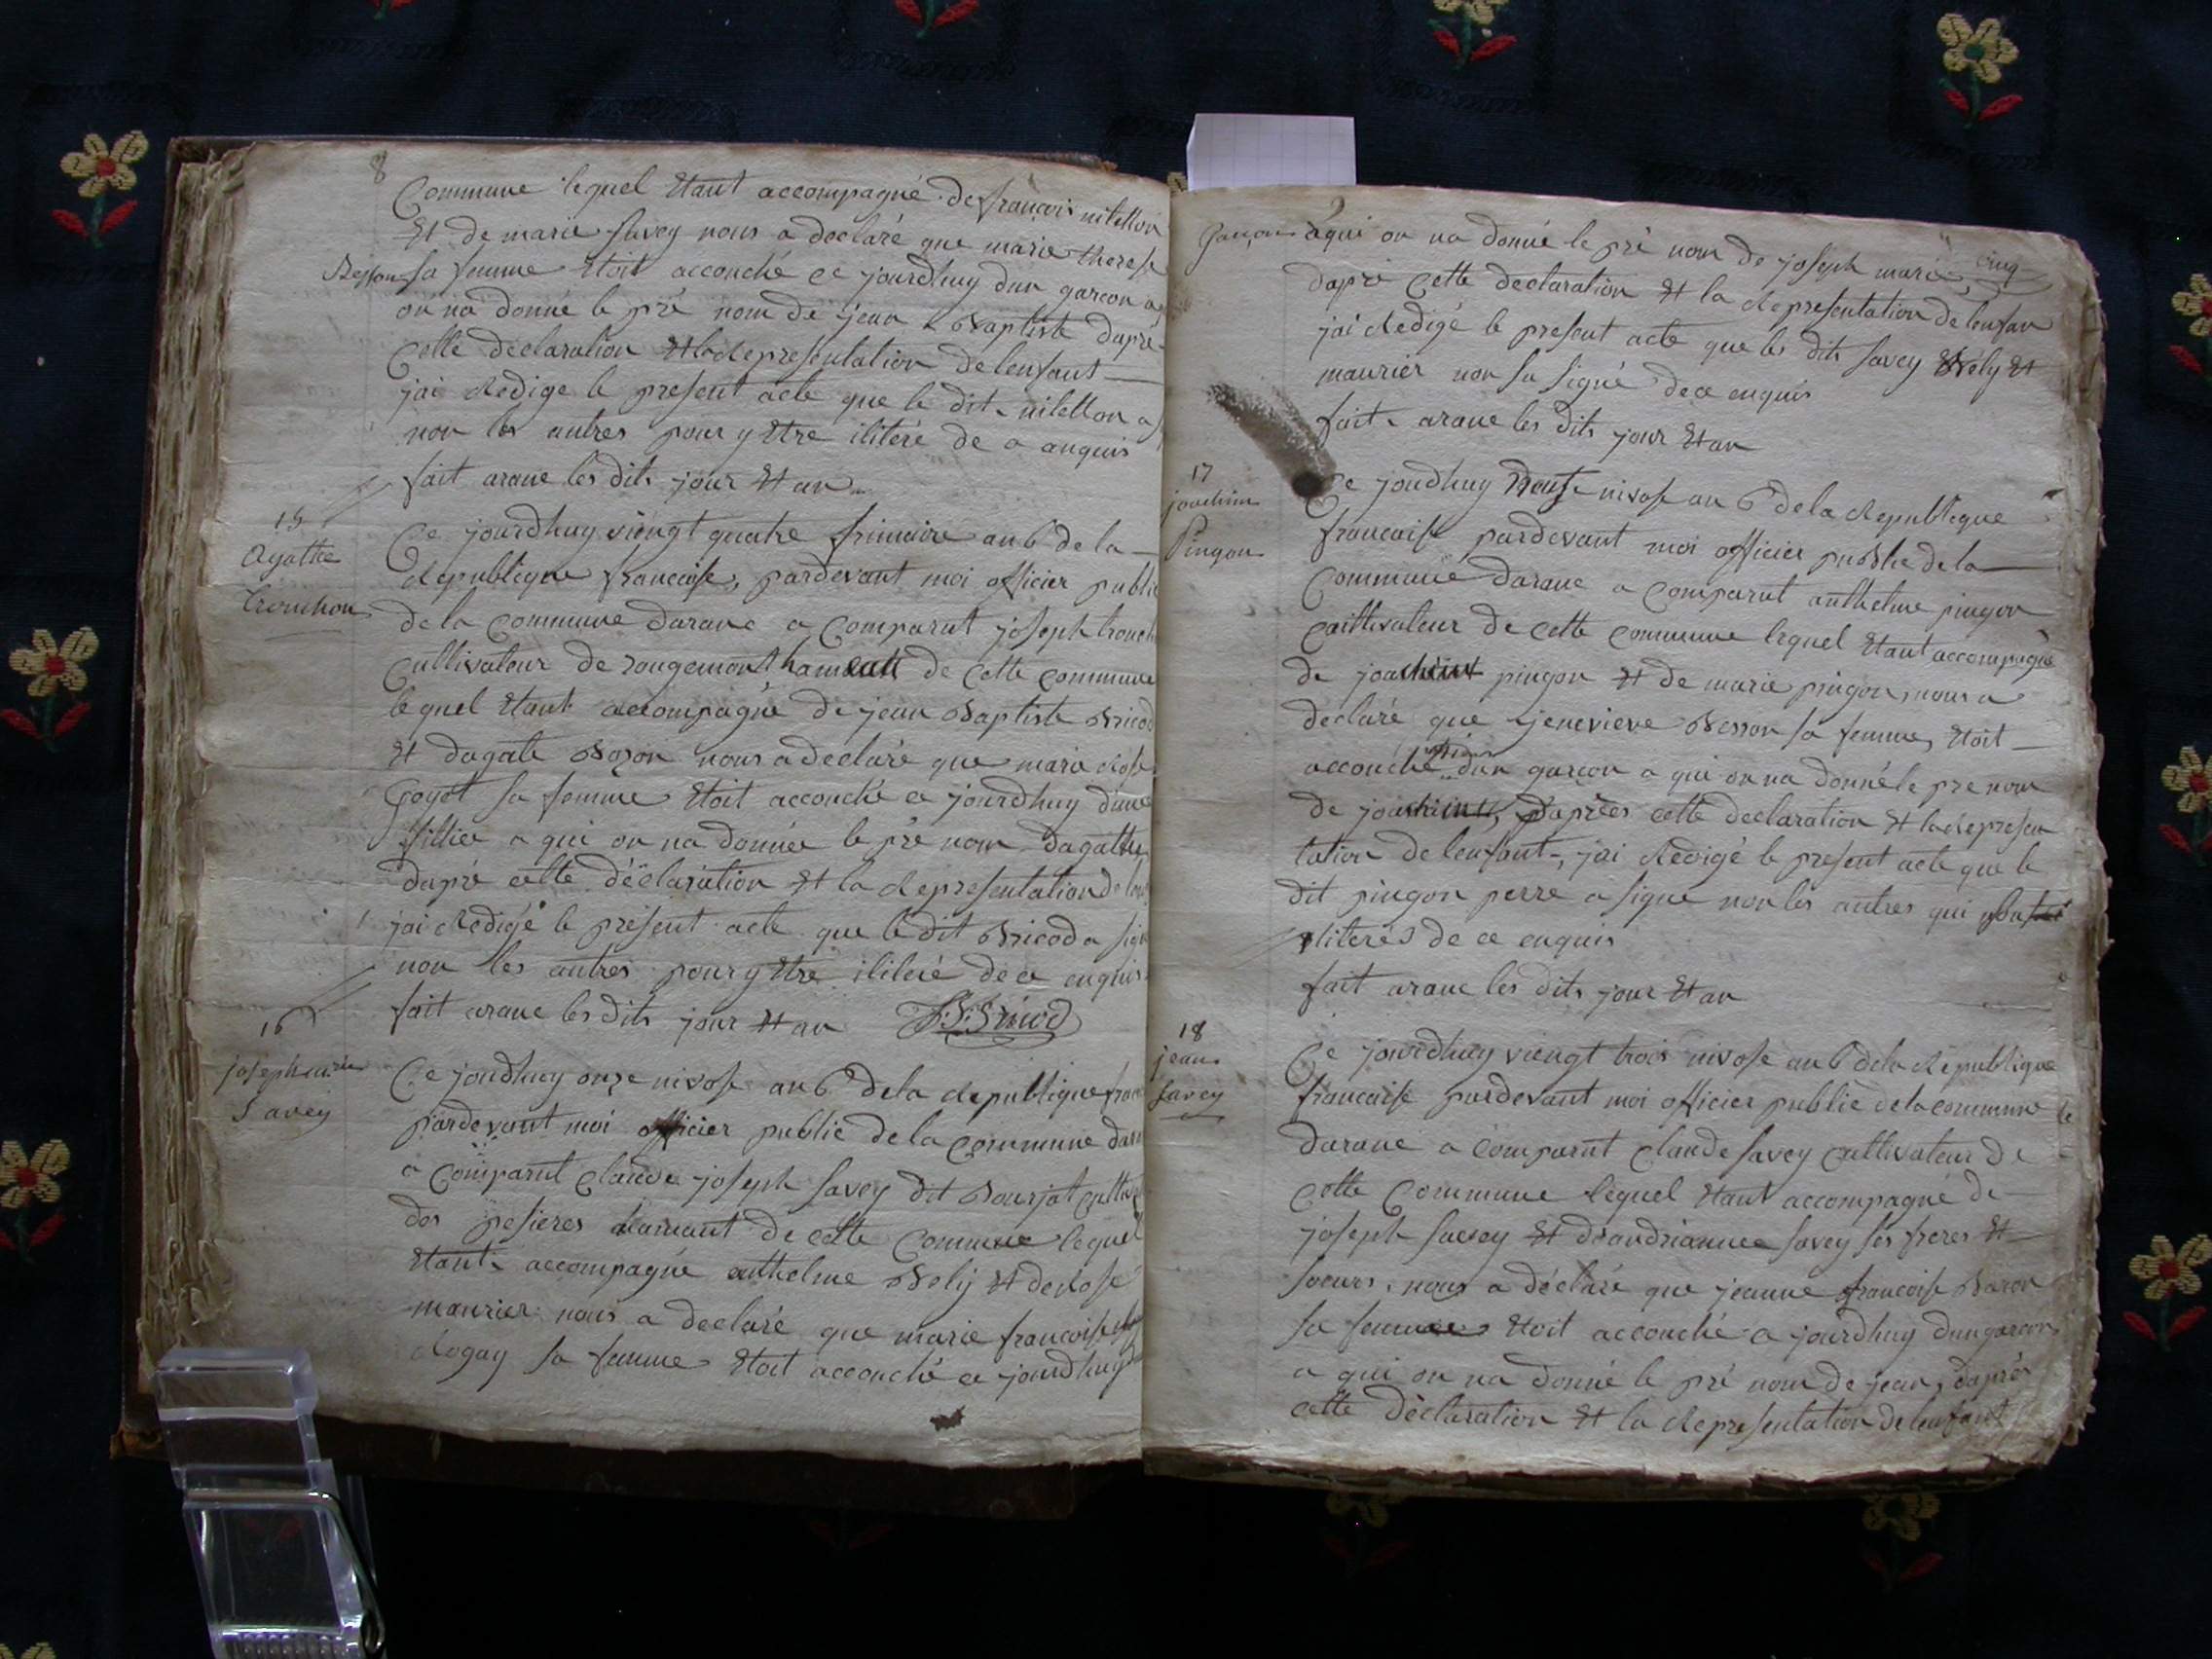 8
Commune lequel Etant accompagné de francois nilellon
Et de marie Savey nous a declaré que marie therese
Besson sa femme Etoit accouché ce jourdhuy dun garcon a
on na donné le pré nom de jean Baptiste dapré
Cette declaration Et la representation de lenfant
jai Redigé le present acte que le dit nilellon a
non les autres pour y Etre iliteré de ce anquis
fait arane les dits jour Et an
15
Agathe
Tronchon
Ce jourdhuy viengt quatre frimaire an 6 de la
Republique francaise, pardevant moi officier public
de la Commune darane a Comparut joseph tronch
Cultivateur de rougemont hameau de Cette Commune
lequel Etant accompagné de jean Baptiste Bricod
Et dagate Bozon nous a declaré que marie Rose
Goyet sa femme Etoit accouché ce jourdhuy dune
fillie a qui on na donnée le pré nom dagathe
dapré cette déclaration Et la Representation de len
jai Redigé le présent acte que le dit Bricod a sign
non les autres pour y Etre iliteré de ce enquis
fait arane les dits jour Et an J: B: Bricod
16
joseph marie
Savey
Ce jourdhuy onze nivose an 6 de la Republique franc
pardevant moi officier public de la Commune daran
a Comparut Claude joseph Savey dit Bourjat Cultiv
des pesieres hamaut de cette Commune lequel
Etant accompagné anthelme Bely Et de Rose
maurier nous a declaré que marie francoise
Rogay sa femme Etoit accouché ce jourdhuy
9 cinq
Garçon a qui on na donné le pré nom de joseph marie,
dapré Cette declaration Et la Representation de lenfan
jai Redigé le present acte que les dits Savey Bely Et
maurier non su signé de ce enquis
fait arane les dits jour Et an
17
joachim
Pingon
Ce jourdhuy nivose an 6 de la Republique
francaise pardevant moi officier public de la
Commune darane a Comparut anthelme pingon
Caultivateur de cette Commune lequel Etant accompagné
de joachint pingon Et de marie pingon, nous a
declaré que jenevieve Besson sa femme, Etoit
accouché dun garcon a qui on na donné le pre nom
de joachint, Daprèes cette declaration Et la represen
tation de lenfant, jai Redigé le present acte que le
dit pingon perre a signe non les autres qui
iliterés de ce enquis
fait arane les dits jour Et an
18
jean
Savey
Ce jourdhuy viengt trois nivose an 6 de la Republique
francaise pardevant moi officier public de la commune
darane a Comparut Claude Savey Cultivateur de
Cette Commune lequel Etant accompagné de
joseph Saevey Et deandriannee Savey ses freres Et
soeurs, nous a déclaré que jeanne francoise Baron
sa femme Etoit accouché ce jourdhuy dun garcon
a qui on na donné le pré nom de jean, daprés
cette déclaration Et la Representation de lenfant